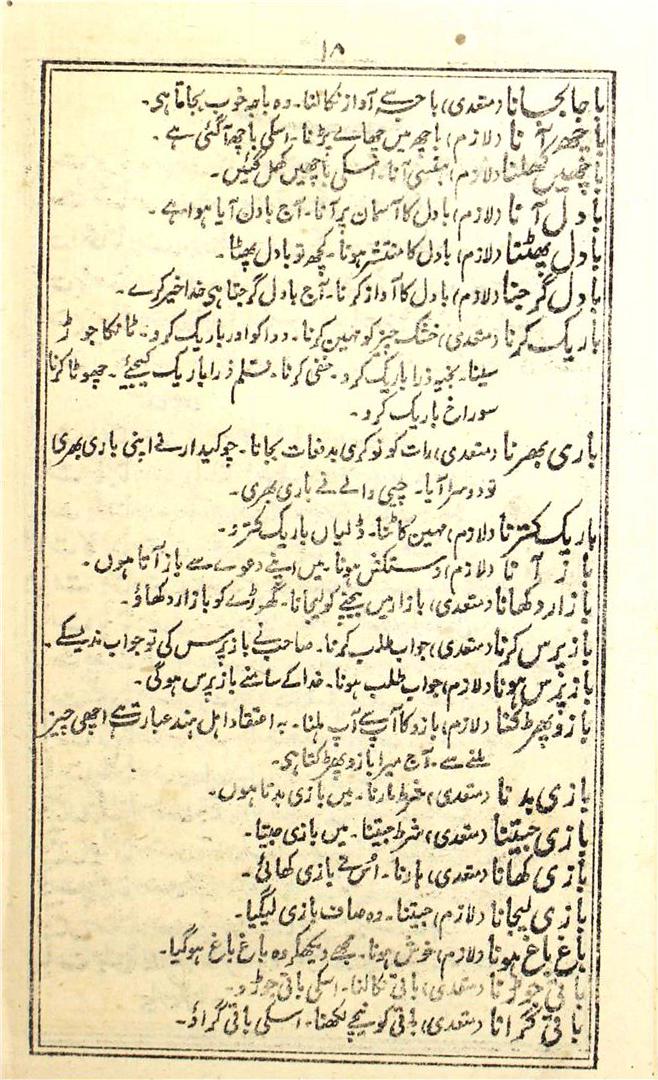 ۱۸
باجا بجانا (متعدی) باجے سے آواز نکالنا۔ وہ باجہ خوب بجاتا ہی۔
باچھ آنا (لازم) باچھ میں چھالے پڑنا۔ اسکی باچھ آگئی ہے۔
باچھیں کھلنا (لازم) ہنسی آنا۔ اسکی باچھیں کھل گئیں۔
بادل آنا (لازم) بادل کا آسمان پر آنا۔ آج بادل آیا ہوا ہے۔
بادل پھٹنا (لازم) بادل کا منتشر ہونا۔ کچھ تو بادل پھٹا۔
بادل گرجنا (لازم) بادل کا آواز کرنا۔ آج بادل گرجتا ہی خدا خیر کرے۔
باریک کرنا (متعدی) خشک چیز کو مہین کرنا۔ دوا کو اور باریک کرو۔ ٹانکا جوڑ
سینا۔ بخیہ ذرا باریک کرو۔ خفی کرنا۔ قلم ذرا باریک کیجئے۔ چھوٹا کرنا
سوراخ باریک کرو۔
باری بھرنا (متعدی) رات کو نوکری بدفعات بجانا۔ چوکیدار نے اپنی باری بھری
تو دوسرا آیا۔ چپی والے نے باری بھری۔
باریک کترنا (لازم) مہین کاٹنا۔ ڈلیاں باریک کترو۔
باز آنا (لازم) دستکش ہونا۔ میں اپنے دعوے سے باز آتا ہوں۔
بازار دکھانا (متعدی) بازار میں بیچنے کو لیجانا۔ گھوڑے کو بازار دکھاؤ۔
باز پرس کرنا (متعدی) جواب طلب کرنا۔ صاحب نے باز پرس کی تو جواب ندیسکے۔
باز پرس ہونا (لازم) جواب طلب ہونا۔ خدا کے سامنے باز پرس ہوگی۔
بازو پھڑکنا (لازم) بازو کا آپ سے آپ ہلنا۔ بہ اعتقاد اہل ہند عبارت ہے اچھی چیز
ملنے سے۔ آج میرا بازو پھڑکتا ہی۔
بازی بدنا (متعدی) شرط مارنا۔ میں بازی بدتا ہوں۔
بازی جیتنا (متعدی) شرط جیتنا۔ میں بازی جیتا۔
بازی کھانا (متعدی) ہارنا۔ اُس نے بازی کھائی۔
بازی لیجانا (لازم) جیتنا۔ وہ صاف بازی لیگیا۔
باغ باغ ہونا (لازم) خوش ہونا۔ مجھے دیکھکر وہ باغ باغ ہوگیا۔
باقی جوڑنا (متعدی) باقی نکالنا۔ اسکی باقی جوڑو۔
باقی گرانا (متعدی) باقی کو نیچے لکھنا۔ اسکی باقی گراؤ۔